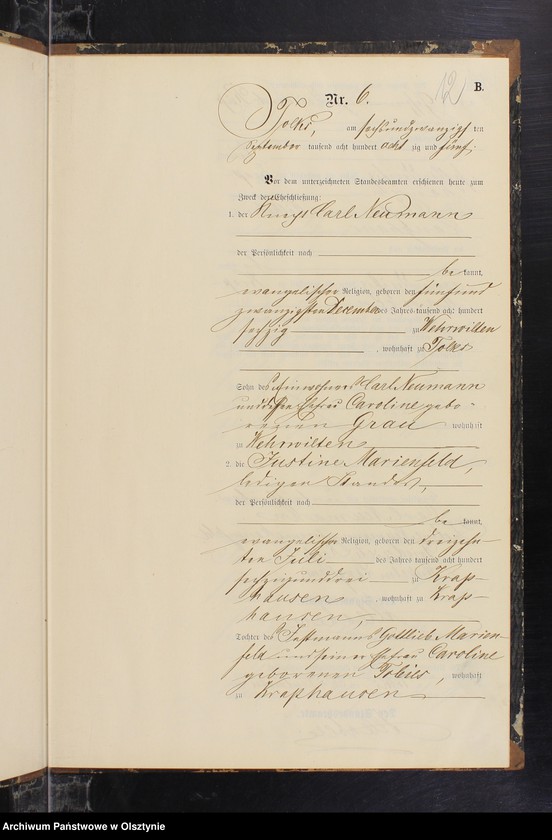 12 B.
Nr. 6.
Tolks, am sechsundzwanzigsten
September tausend acht hundert acht zig und fünf.
Vor dem unterzeichneten Standesbeamten erschienen heute zum
Zweck der Eheschließung:
1. der Carl Neumann
der Persönlichkeit nach
be kannt,
evangelischer Religion, geboren den fünfund
zwanzigsten Dezember des Jahres tausend acht hundert
sechzig zu Wehrwilten
, wohnhaft zu Tolks
Sohn des Einwohners Carl Neumann
und Caroline gebo-
renen Grau wohnhaft
zu Wehrwilten
2. die Justine Marienfeld,
ledigen Standes,
der Persönlichkeit nach
be kannt,
evangelischer Religion, geboren den dreizehn-
ten Juli des Jahres tausend acht hundert
sechzigunddrei zu Kraph-
hausen, wohnhaft zu Kraph-
hausen,
Tochter des Instmanns Gottlieb Marien-
feld und seiner Ehefrau Caroline
geborenen Tobies, wohnhaft
zu Kraphausen
Archiwum Państwowe w Olsztynie